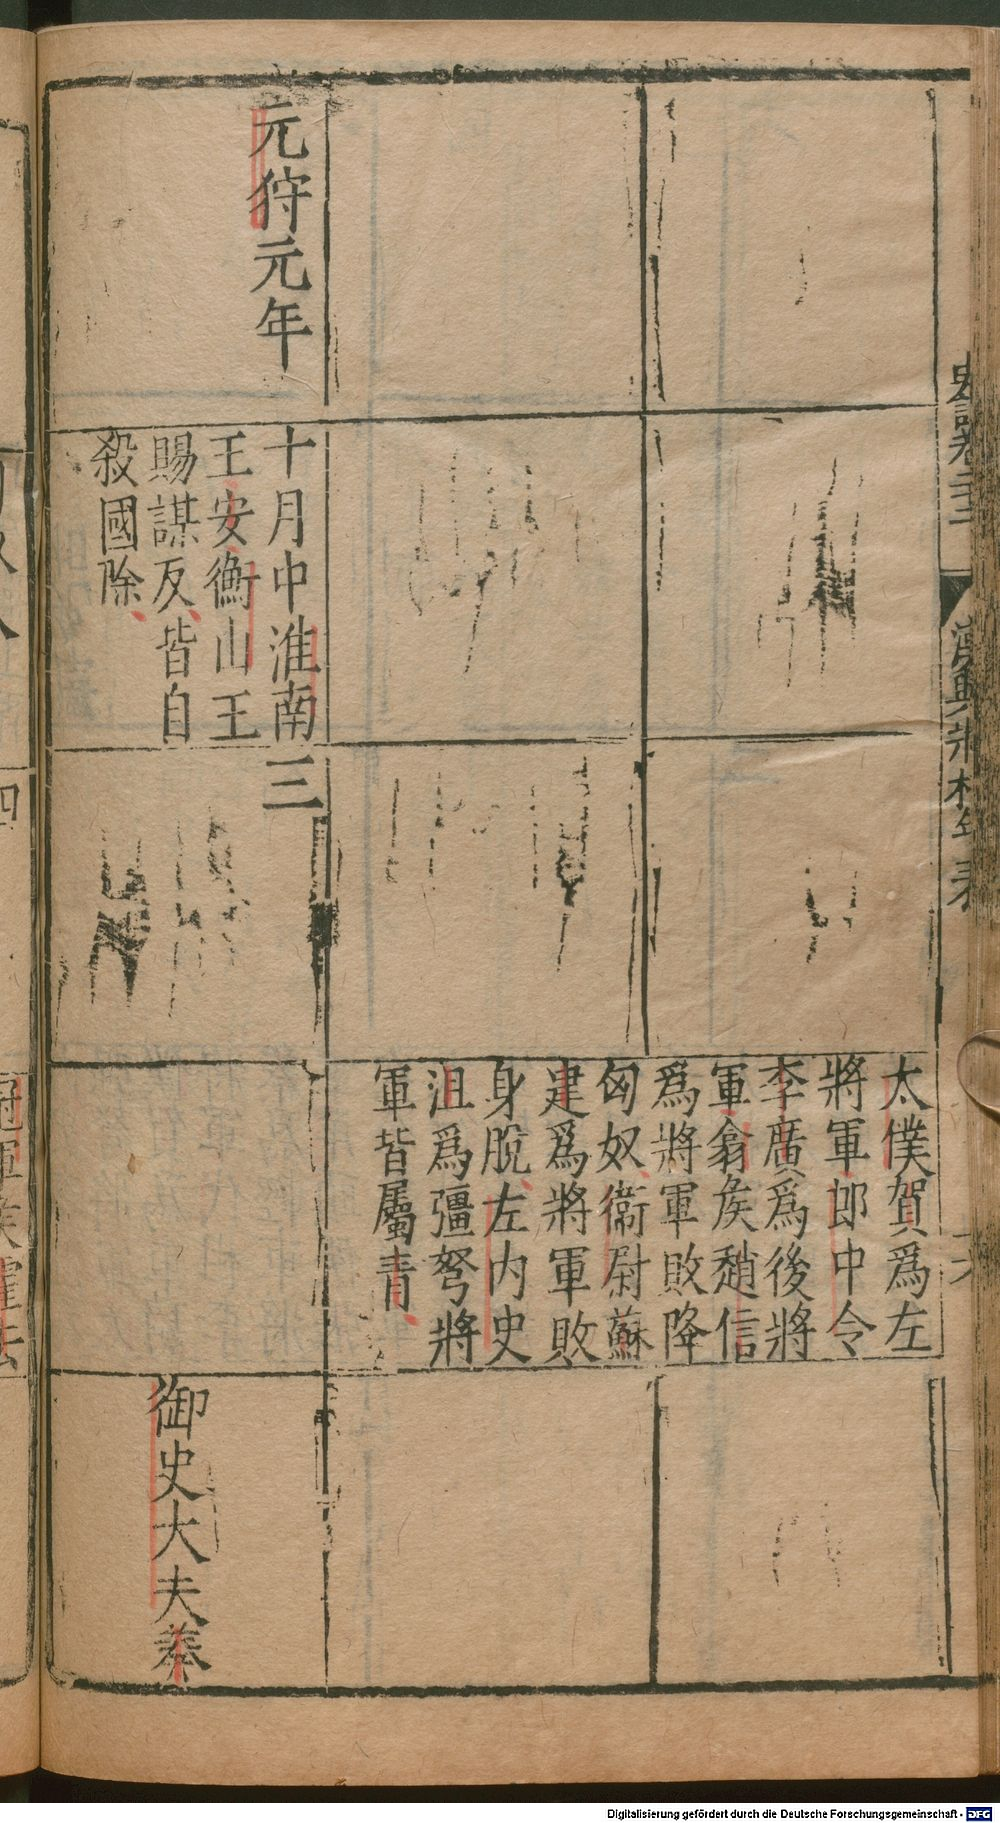 太僕賀爲左
將軍郎中令
李廣爲後將
軍翕矦趙信
爲將軍敗降
匈奴衞尉蘇
建爲將軍敗
身脫左内史
沮爲彊弩將
軍皆屬青
元狩元年
十月中淮南
王安衡山王
賜謀反皆自
殺國除
三
御史大夫
Digitalisierung gefördert durch die Deutsche Forschungsgemeinschaft - DFG